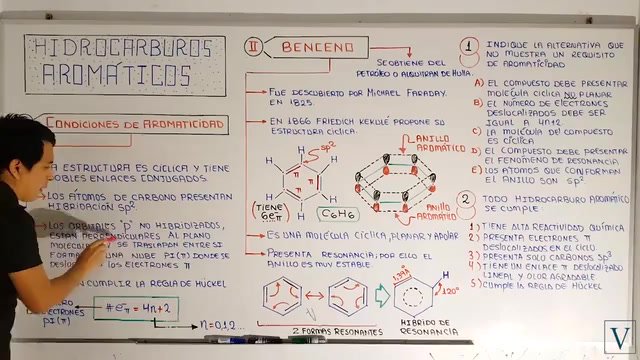 HIDROCARBUROS
AROMÁTICOS
CONDICIONES DE AROMATICIDAD
A ESTRUCTURA ES CICLICA Y TIENE
OBLES ENLACES CONJUGADOS.
LOS ÁTOMOS DE CARBONO PRESENTAN
HIBRIDACIÓN SP²
LOS ORBITALES "P" NO HIBRIDIZADOS,
ESTAN PERPENDICULARES AL PLANO
MOLECULAR Y SE TRASLAPAN ENTRE SI
FORMA UNA NUBE PI(π) DONDE SE
DESLO LOS ELECTRONES π
N CUMPLIR LA REGLA DE HÜCKEL
#eπ = 4n+2
ERO
ECTRONES
PI(π)
n=0,1,2...
II
BENCENO
SE OBTIENE DEL
PETRÓLEO O ALQUITRAN DE HULLA.
FUE DESCUBIERTO POR MICHAEL FARADAY.
EN 1825.
EN 1866 FRIEDICH KEKULÉ PROPUSO SU
ESTRUCTURA CÍCLICA.
H
H
SP²
H
H
H
H
π
π
π
(TIENE
6eπ)
C6H6
ANILLO
AROMÁTICO
Anillo
AROMÁTICO
ES UNA MOLÉCULA CÍCLICA, PLANAR Y APOLAR
PRESENTA RESONANCIA; POR ELLO EL
ANILLO ES MUY ESTABLE.
2 FORMAS RESONANTES
1.39Å
H
120°
HIBRIDO DE
RESONANCIA
1
INDIQUE LA ALTERNATIVA QUE
NO MUESTRA UN REQUISITO
DE AROMATICIDAD
A) EL COMPUESTO DEBE PRESENTAR
MOLÉCULA CÍCLICA NO PLANAR
B) EL NÚMERO DE ELECTRONES
DESLOCALIZADOS DEBE SER
IGUAL A 4n+2
C) LA MOLÉCULA DEL COMPUESTO
ES CÍCLICA
D) EL COMPUESTO DEBE PRESENTAR
EL FENÓMENO DE RESONANCIA
E) LOS ATOMOS QUE CONFORMAN
EL ANILLO SON SP²
2
TODO HIDROCARBURO AROMÁTICO
SE CUMPLE:
1) TIENE ALTA REACTIVIDAD QUÍMICA
2) PRESENTA ELECTRONES π
DESLOCALIZADOS EN EL CICLO.
3) PRESENTA SOLO CARBONOS SP³
4) TIENE UN ENLACE π DESLOCALIZADO
LINEAL Y OLOR AGRADABLE
5) CUMPLE LA REGLA DE HÜCKEL
V